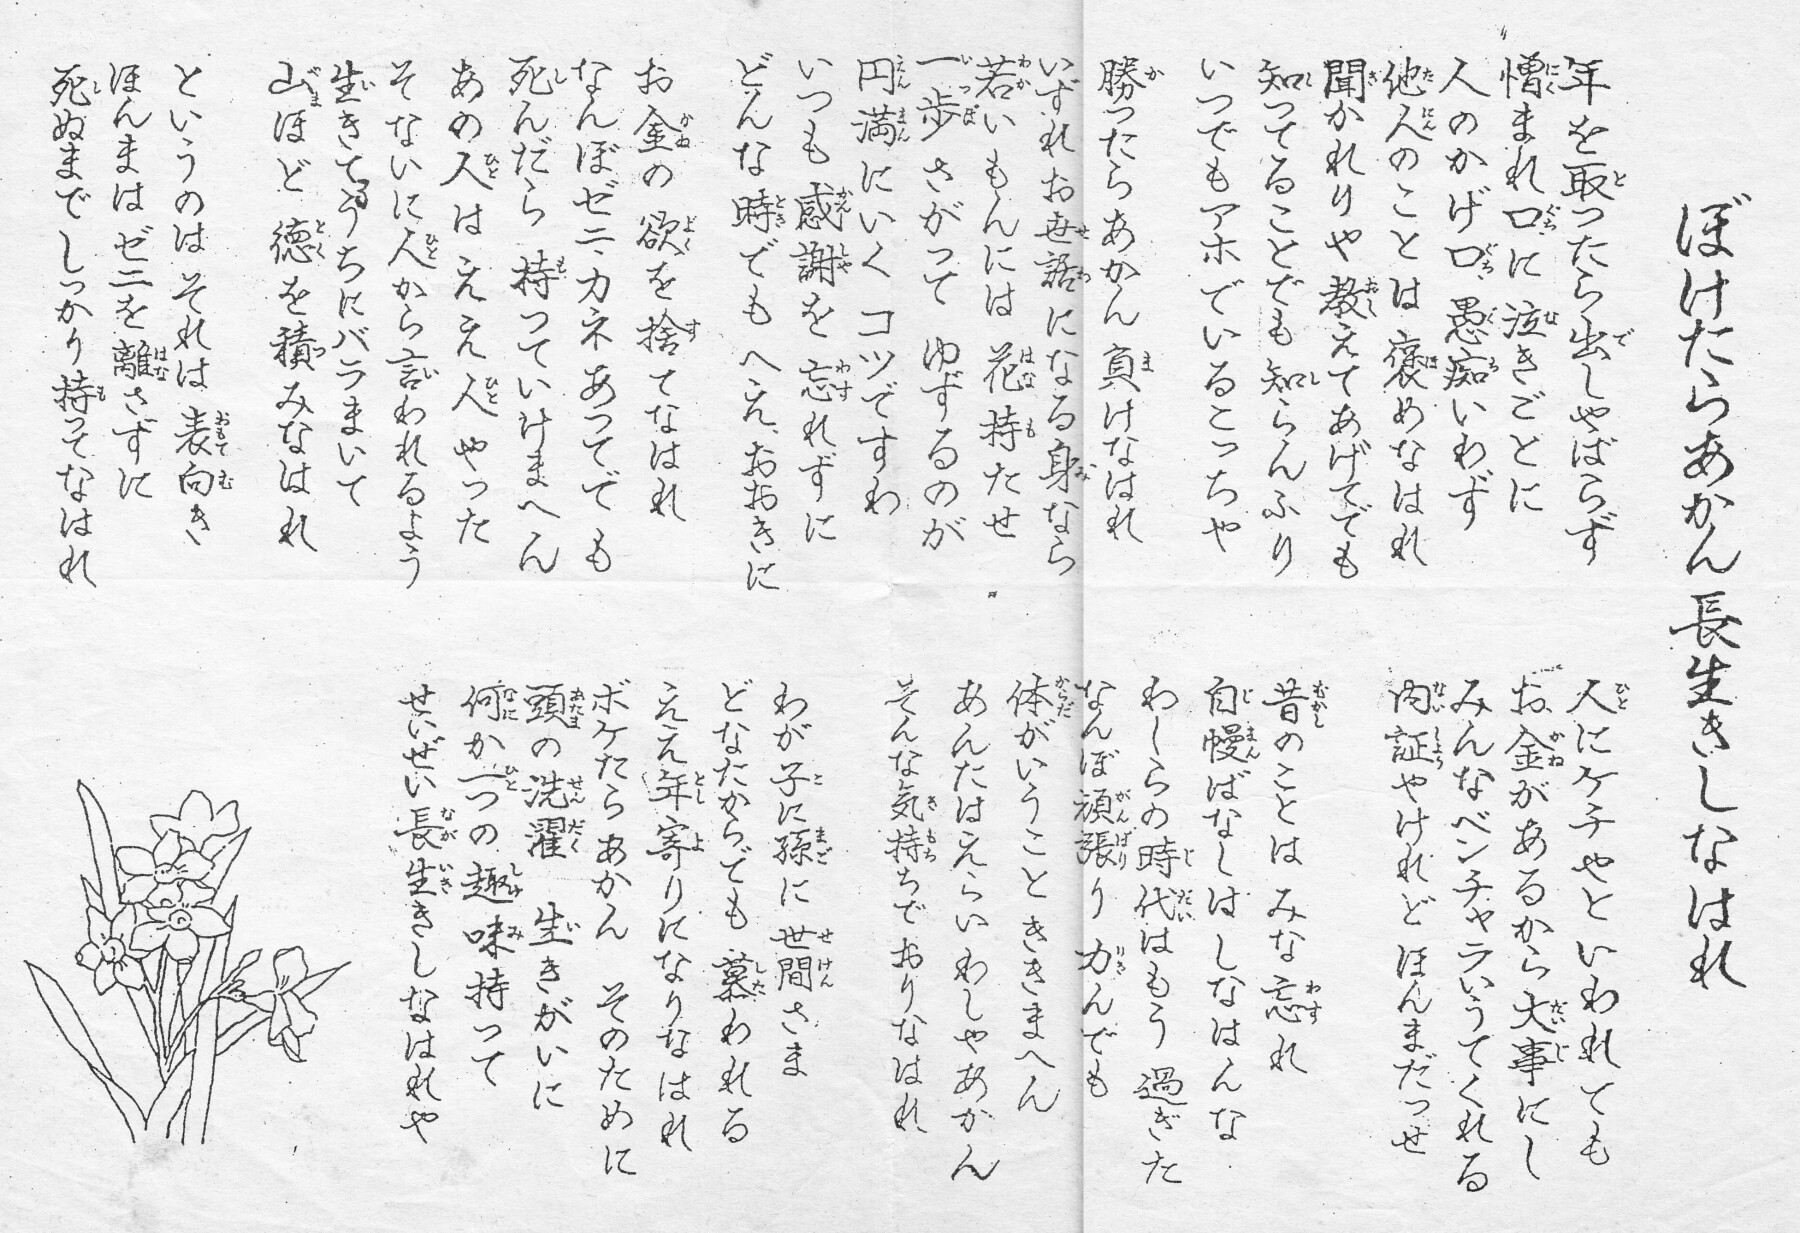 ぼけたらあかん 長生きしなはれ
年を取ったら出しゃばらず
憎まれ口に泣きごとに
人のかげ口、愚痴いわず
他人のことは褒めなはれ
聞かれりゃ教えてあげてでも
知ってることでも知らんふり
いつでもアホでいるこっちゃ
勝ったらあかん負けなはれ
いずれお世話になる身なら
若いもんには花持たせ
一歩さがって ゆずるのが
円満にいく コツですわ
いつも感謝を忘れずに
どんな時でも へえ、おおきに
お金の欲を捨てなはれ
なんぼゼニ、カネあってでも
死んだら持っていけまへん
あの人はええ人やった
そないに人から言われるよう
生きてるうちにバラまいて
山ほど徳を積みなはれ
というのはそれは表向き
ほんまはゼニを離さずに
死ぬまでしっかり持ってなはれ
人にケチやといわれても
お金があるから大事にし
みんなベンチャラいうてくれる
内証やけれど ほんまだっせ
昔のことは みな忘れ
自慢ばなしはしなはんな
わしらの時代はもう過ぎた
なんぼ頑張り力んでも
体がいうこときまへん
あんたはえらいわしゃあかん
そんな気持ちでおりなはれ
わが子に孫に世間さま
どなたからでも慕われる
ええ年寄りになりなはれ
ボケたらあかん そのために
頭の洗濯 生きがいに
何か一つの趣味持って
せいぜい長生きしなはれや